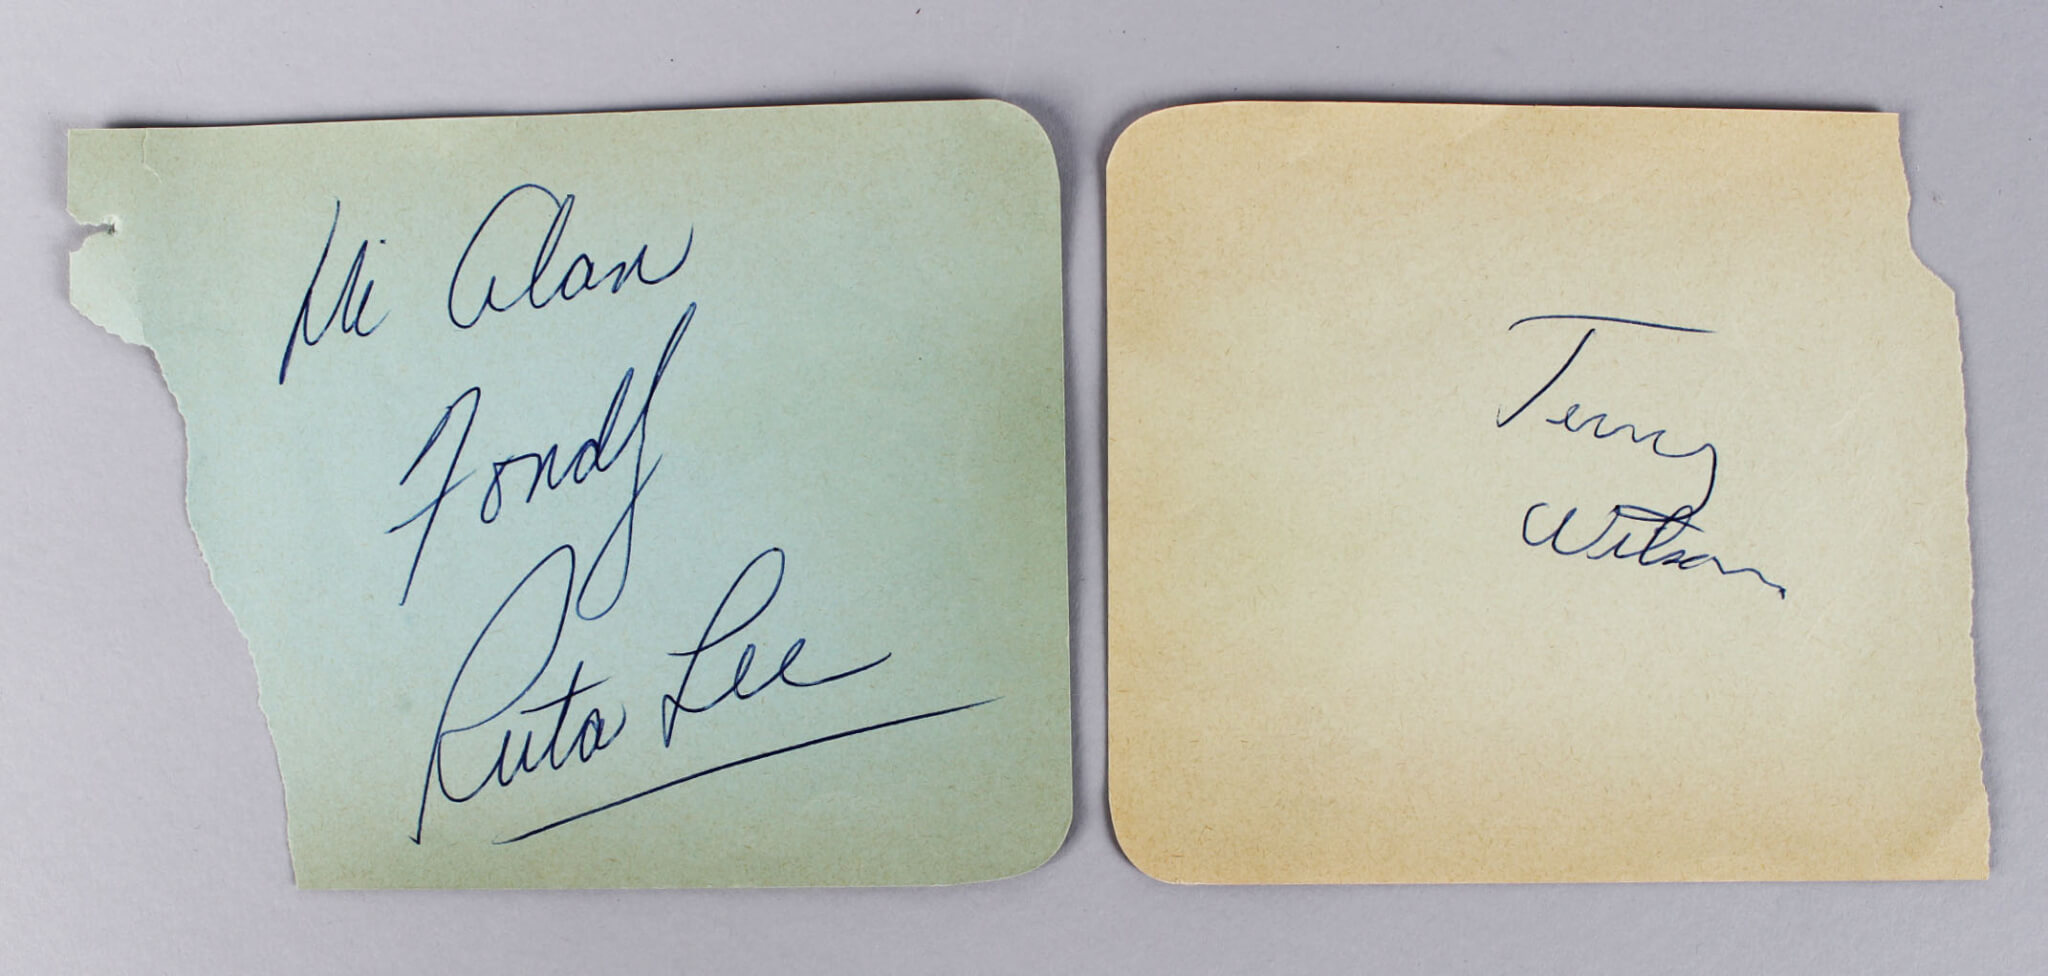 Hi Alan
Fondly
Ruta Lee
Terry
Wilson